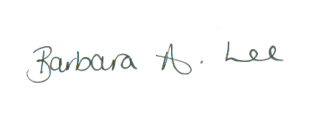 Barbara A. Lee